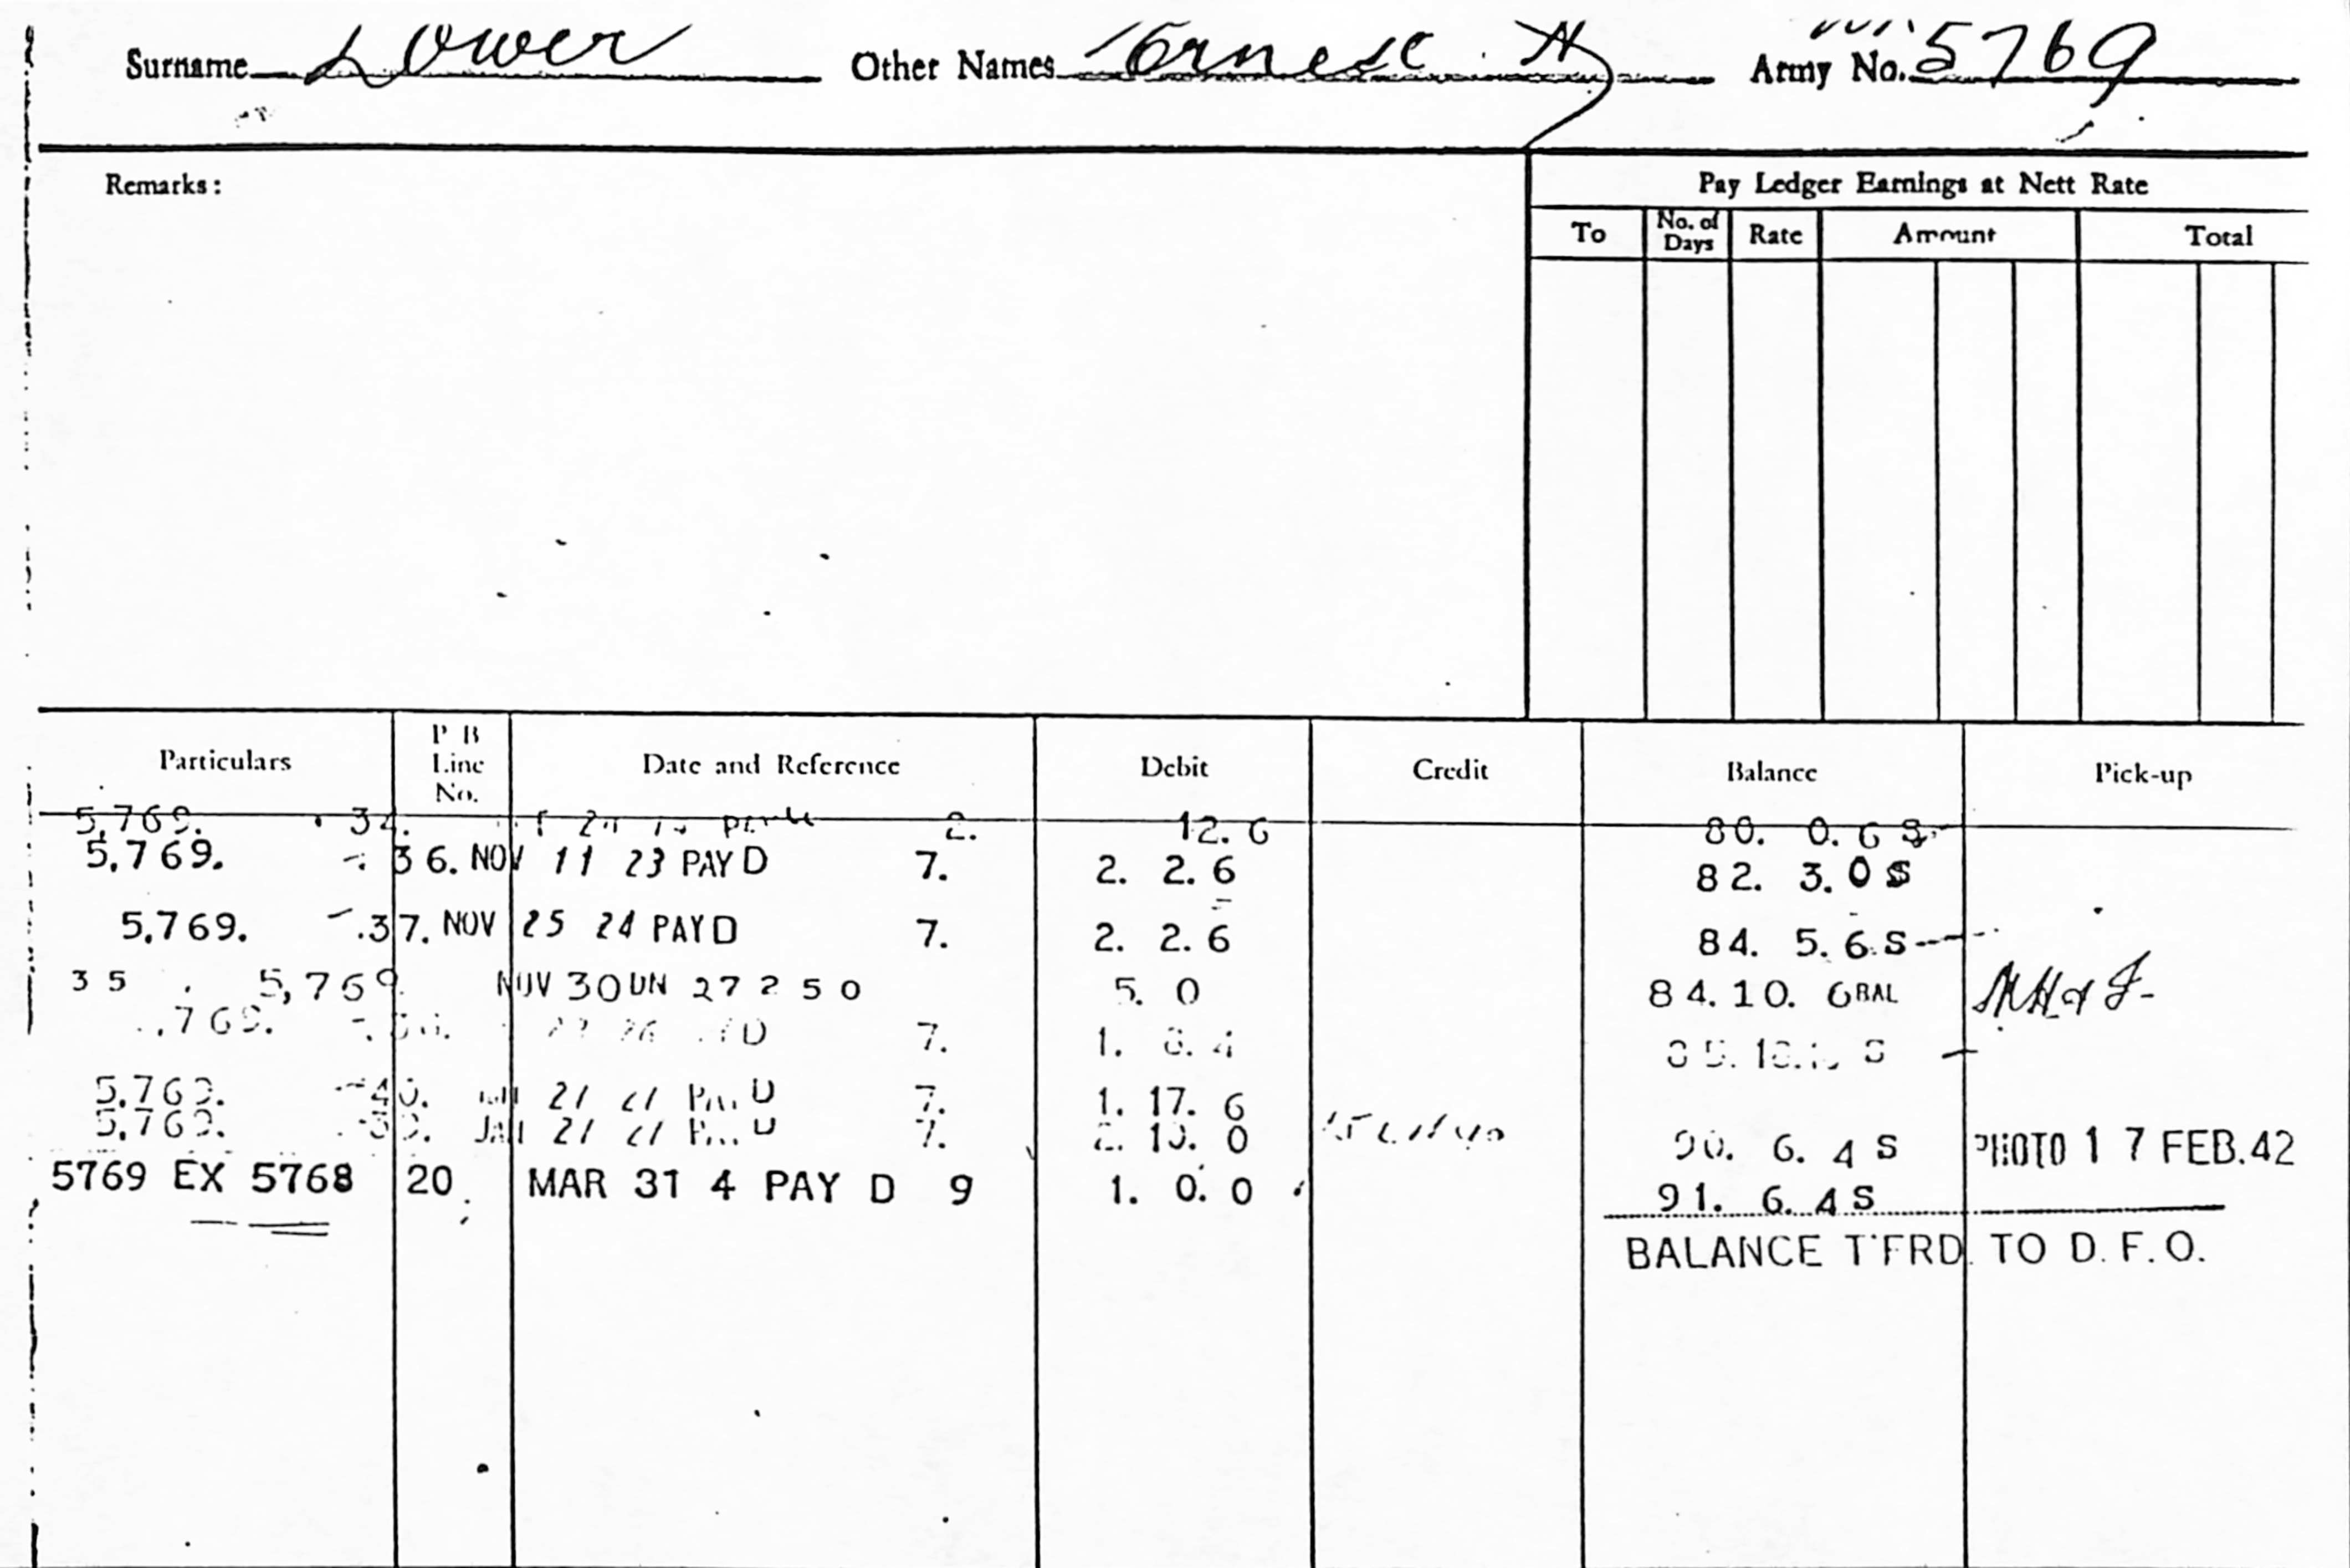 Surname Lower Other Names Ernest A Army No. 5769
Remarks:
Pay Ledger Earnings at Nett Rate
To No. of Days Rate Amount Total
Particulars P B Line No. Date and Reference Debit Credit Balance Pick-up
5,769. 2. 12. 6 80. 0. 6 S
5,769. 36. NOV 11 23 PAY D 7. 2. 2. 6 82. 3. 0 S
5,769. 37. NOV 25 24 PAY D 7. 2. 2. 6 84. 5. 6 S
35 5,769. NOV 30 UN 27 2 5 0 5. 0 84. 10. 6 BAL
D 7. 1. S
5,769. 40. 21 D 7. 1. 17. 6
5,769. JAN 21 D 7. 0 90. 6. 4 S PHOTO 1 7 FEB. 42
5769 EX 5768 20. MAR 31 4 PAY D 9 1. 0. 0 91. 6. 4 S
BALANCE T'FRD TO D. F. O.